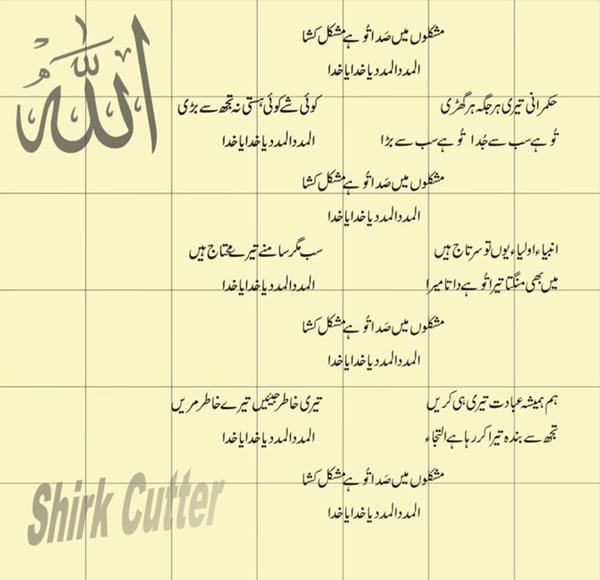 اللہ
مشکلوں میں صَدا تُو ہے مشکل کشا
المدد المدد یا خدا یا خدا
حکمرانی تیری ہر جگہ ہر گھڑی کوئی شے کوئی ہستی نہ تجھ سے بڑی
تُو ہے سب سے جُدا تُو ہے سب سے بڑا المدد المدد یا خدا یا خدا
مشکلوں میں صَدا تُو ہے مشکل کشا
المدد المدد یا خدا یا خدا
انبیاء اولیاء یوں تو سرتاج ہیں سب مگر سامنے تیرے محتاج ہیں
میں بھی منگتا تیرا تُو ہے داتا میرا المدد المدد یا خدا یا خدا
مشکلوں میں صَدا تُو ہے مشکل کشا
المدد المدد یا خدا یا خدا
ہم ہمیشہ عبادت تیری ہی کریں تیری خاطر جیئیں تیرے خاطر مریں
تجھ سے بندہ تیرا کر رہا ہے التجاء المدد المدد یا خدا یا خدا
مشکلوں میں صَدا تُو ہے مشکل کشا
المدد المدد یا خدا یا خدا
Shirk Cutter